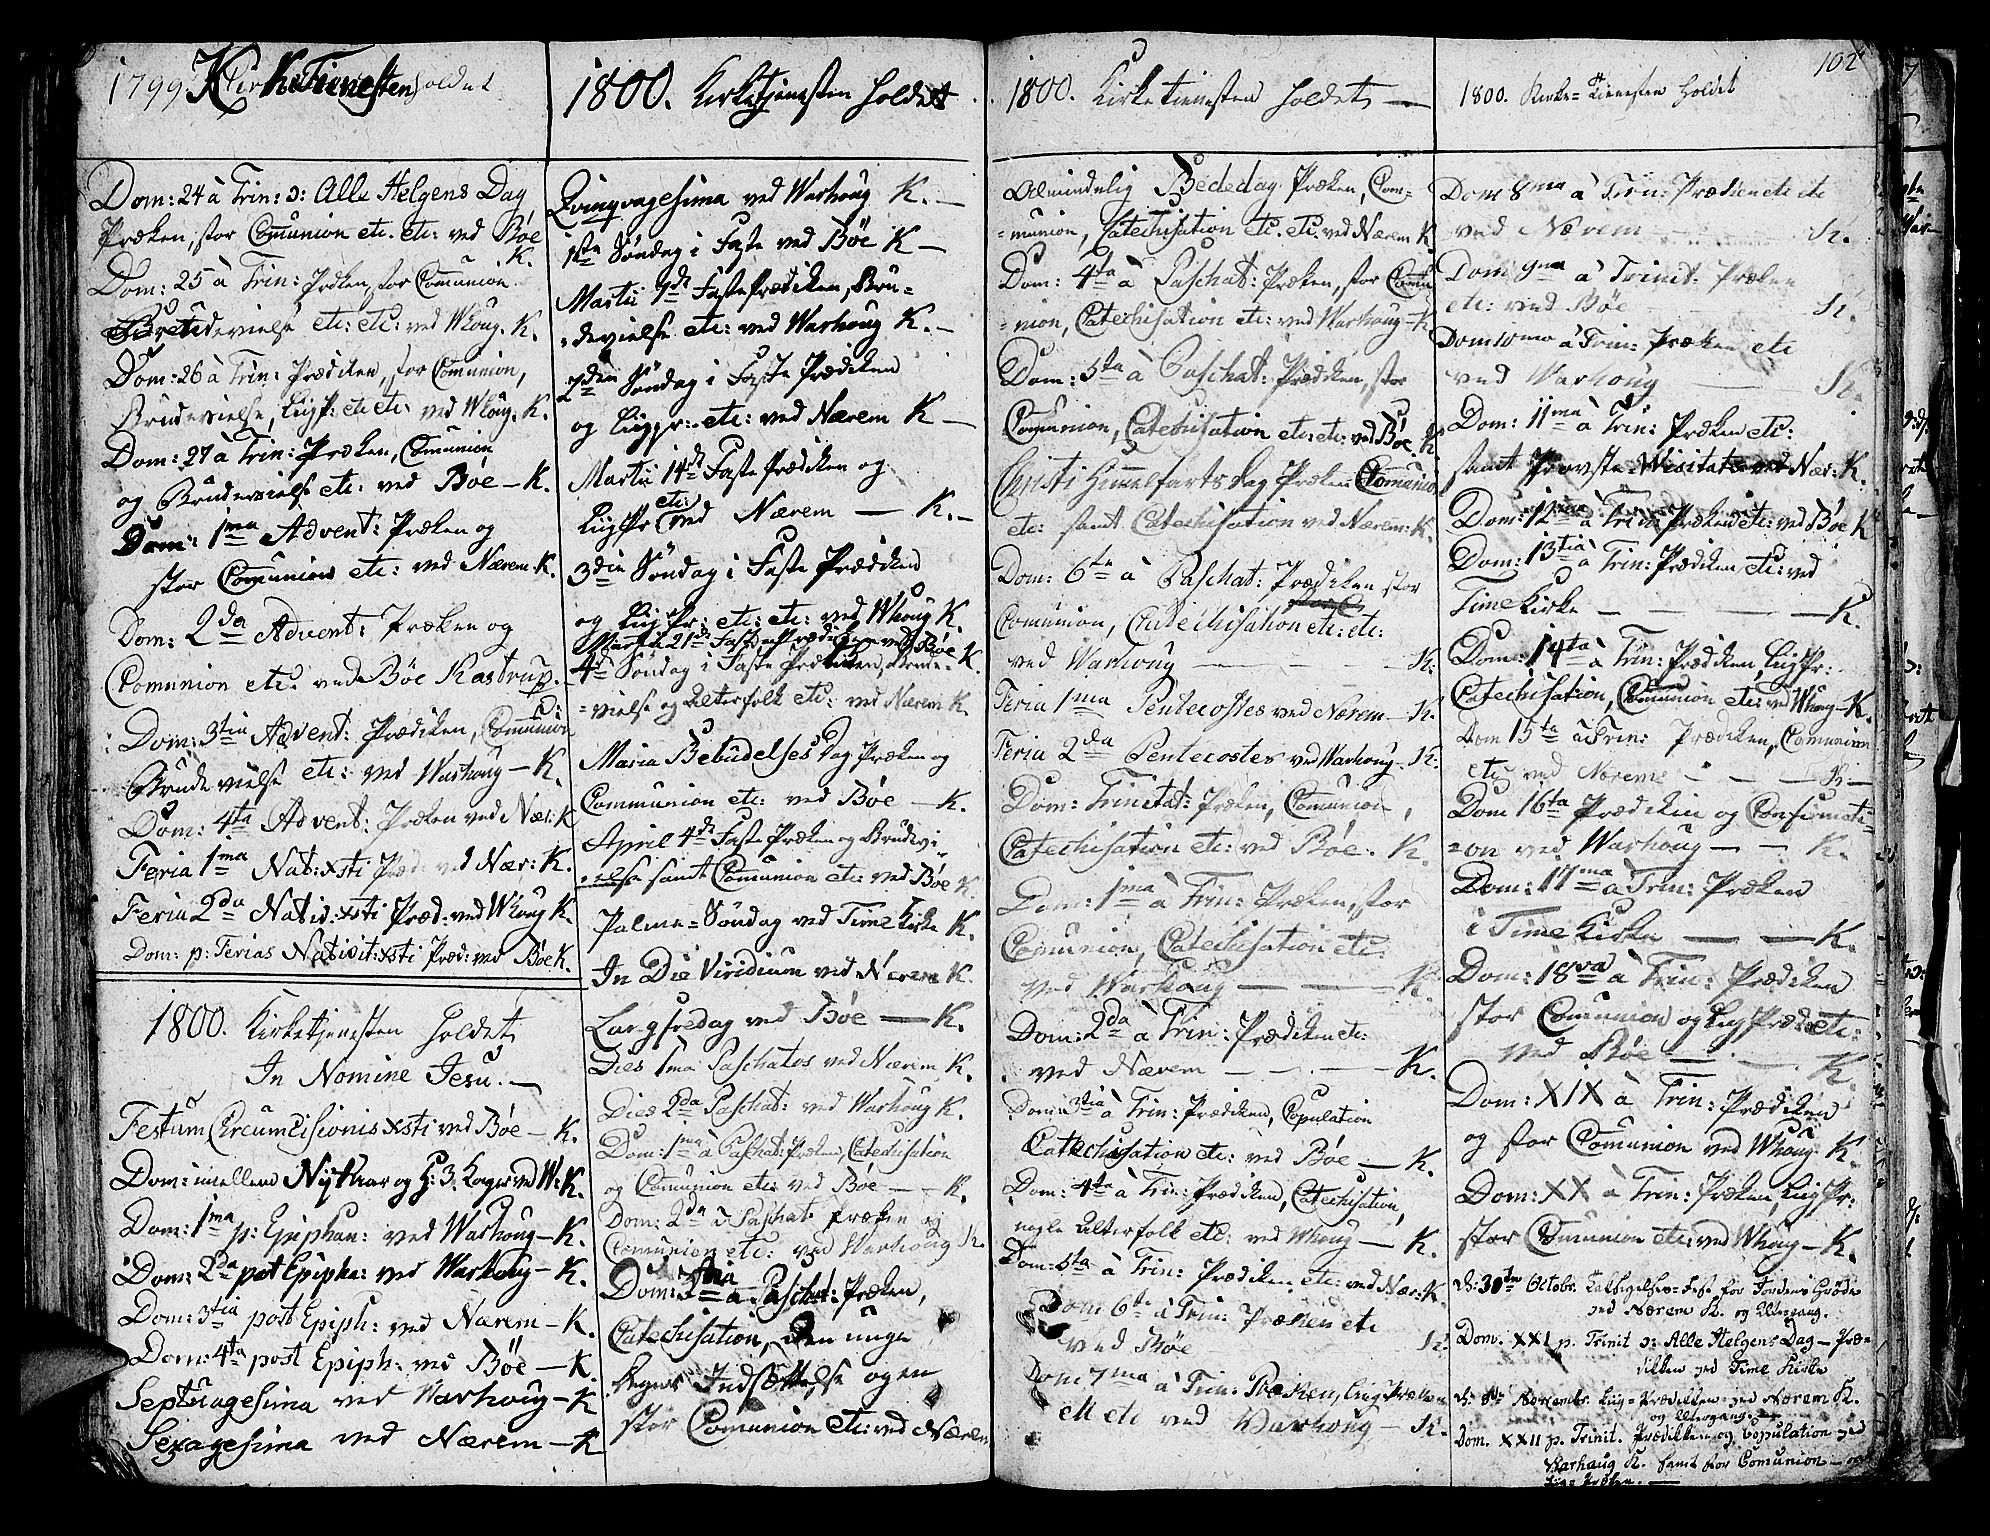 1799 Kirke Tienesten holdet
Dom: 24 à Trin: ɔ: Alle Helgens Dag
Præken, stor Comunion etc. etc: ved Bøe
K.
Dom: 25 à Trin: Præken, stor Comunion
Brudevielse etc: etc: ved Whoug. K.
Dom: 26 à Trin: Prædiken, stor Comunion,
Brudevielse, Liigpr: etc etc: ved Whoug. K.
Dom: 27 à Trin: Præken, Comunion
og Brudevielse etc: ved Bøe – K.
Dom: 1ma Advent: Præken og
stor Comunion etc: ved Nærem. K.
Dom: 2da Advent: Præken og
Comunion etc: ved Bøe Kastrup.
Dom: 3tia Advent: Prædiken, Comunion
Brude vielse etc: ved Warhoug – K.
Dom: 4ta Advent: Præken ved Nær: K
Feria 1ma Nat: xsti Præd: ved Nær: K.
Feria 2da Nativ: xsti Præd: ved Whoug K.
Dom: p: Ferias Nativit: xsti Præd: ved Bøe K.
1800. Kirketjenesten holdet
In Nomine Jesu. –
Festum Circumcisionis xsti ved Bøe – K.
Dom: imellem Nytaar og H: 3. Konger ved W: K.
Dom: 1ma p: Epiphan: ved Warhoug – K.
Dom: 2da post Epipha: ved Warhoug – K.
Dom: 3tia post Epiph: ved Nærem – K.
Dom: 4ta post Epiph: ved Bøe – K.
Septuagesima ved Warhoug – K
Sexagesima ved Nærem – K
1800. Kirketjenesten holdet
Qvinqvagesima ved Warhoug K. –
1ste Søndag i Faste ved Bøe K –
Martii 7de Fasteprædiken, Bru=
=devielse etc: ved Warhoug K. –
2den Søndag i Faste Prædiken
og Liigpr: etc: ved Nærem K –
Martii 14de Fasteprædiken og
Liigpr etc: ved Nærem – K. –
3die Søndag i Faste Prædiken
og Liigpr: etc: etc: ved Whoug K.
Martii 21de Fasteprædiken ved Bøe K
4de Søndag i Faste Prædiken, Brude=
=vielse og Alterfolk etc: ved Nærem K.
Maria Bebudelses Dag Præken og
Communion etc: ved Bøe – K.
April 4de Faste Præken og Brudevi=
=else samt Comunion etc: ved Bøe K.
Palme=Søndag ved Time Kirke K.
In Die Viridium ved Nærem K.
Langfredag ved Bøe – K.
Dies 1ma Paschatos ved Nærem K.
Dies 2da Paschat: ved Warhoug K.
Dom: 1ma à Paschat: Præken, Catechisation
og Comunion etc: ved Bøe – – K.
Dom: 2da à Paschat: Præken og
Comunion etc: ved Warhoug K
Dom: 3tia à Paschat: Præken,
Catechisation, den unge
Indsættelse og en
stor Comunion etc: ved Nærem
1800. Kirketienesten holdet –
Almindelig Bededag Præken, Com=
=munion, Catechisation etc. etc. ved Nærem K
Dom: 4ta à Paschat: Præken, stor Comu
=nion, Catechisation etc: ved Warhoug – K
Dom: 5ta à Paschat: Prædiken, stor
Comunion, Catechisation etc: etc: ved Bøe K
Christi Himmelfarts Dag Præken Comunion
etc: samt Catechisation ved Nærem: K.
Dom: 6ta à Paschat: Prædiken stor
Comunion, Catechisation etc: etc:
ved Warhoug – – – – K.
Feria 1ma Pentecostes ved Nærem – K.
Feria 2da Pentecostes ved Warhoug – K.
Dom: Trinitat: Præken, Comunion,
Catechisation etc: ved Bøe. K.
Dom: 1ma à Trin: Præken, stor
Comunion, Catechisation etc:
ved Warhoug – – – K.
Dom: 2da à Trin: Prædiken etc:
ved Nærem – – – K.
Dom: 3tia à Trin: Prædiken, Copulation
Catechisation etc: ved Bøe – K.
Dom: 4ta à Trin: Prædiken, Catechisation,
nogle Alterfolk etc: ved Whoug – K.
Dom: 5ta à Trin: Prædiken etc: ved Nær: K.
Dom 6te à Trin: Præken etc
ved Bøe K.
Dom 7ma à Trin: Præken, Liig Præken
etc etc ved Warhoug – K.
102
1800. Kirke=Tienesten holdet
Dom 8ma à Trin: Prædiken etc etc
ved Nærem K.
Dom 9ma à Trinit: Præken
etc: ved Bøe K.
Dom 10mo à Trin: Præken etc
ved Warhoug – K.
Dom: 11ma à Trin: Præken etc:
samt Provste Visitats ved Nær: K.
Dom: 12ma à Trin: Præken etc: ved Bøe K
Dom: 13tia à Trin: Prædiken etc: ved
Time Kirke – – – – K.
Dom: 14ta à Trin: Prædiken, Liigpr:
Catechisation, Comunion etc: ved Whoug – K.
Dom 15ta à Trin: Prædiken, Comunion
etc ved Nærem – – – K –
Dom 16ta Prædiken og Confirmati=
=on ved Warhoug – – K.
Dom: 17ma à Trin: Præken
i Time Kirke – – K.
Dom: 18va à Trin: Prædiken
stor Comunion og Liig Præken etc:
ved Bøe – – K.
Dom: XIX à Trin: Prædiken
og stor Comunion ved Whoug K.
Dom: XX à Trin: Præken, Liigpr:
stor Comunion etc: ved Whoug – K.
d: 30te Octobr. Taksigelses=Fest for Jordens Grøde
ved Nærem K. og Altergang.
Dom. XXI p. Trinit ɔ: Alle Helgens Dag – Præ=
diken ved Time Kirke
Novembr. Liig=Prædiken ved Nærem K.
og Altergang. –
Dom. XXII p. Trinit. Prædiken og Copulation ved
Warhaug K. samt stor Comunion – og
Liig=Præken. –